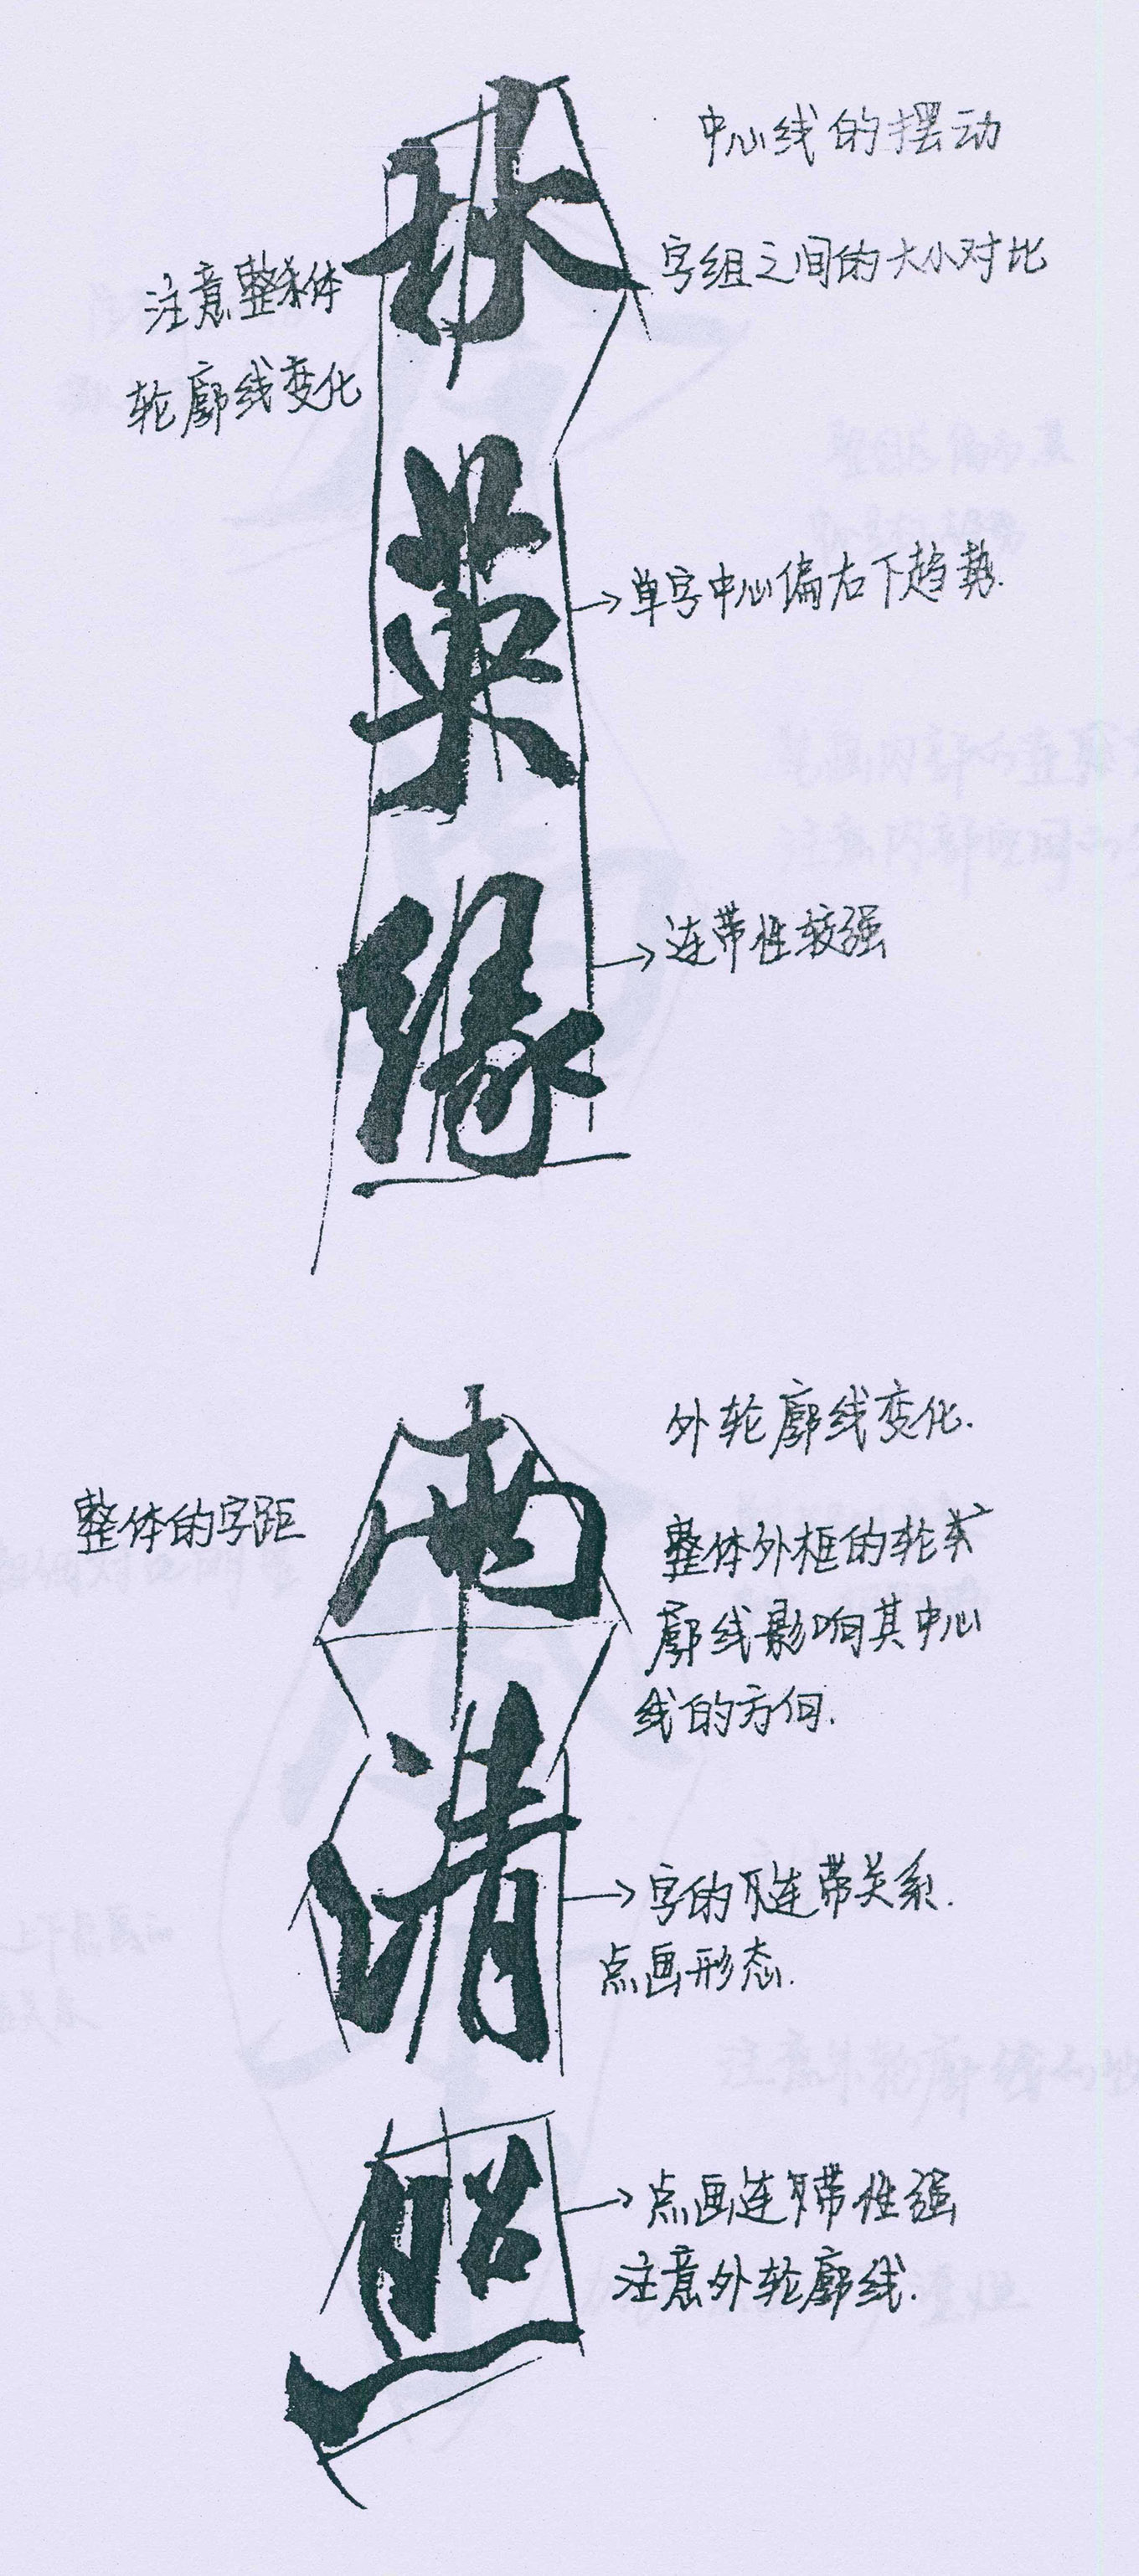 中心线的摆动
字组之间的大小对比
注意整体
轮廓线变化
英
单字中心偏右下趋势.
缘
连带性较强
两
外轮廓线变化.
整体的字距
整体外框的轮
廓线影响其中心
线的方向.
清
字的连带关系.
点画形态.
照
点画连带性强
注意外轮廓线.